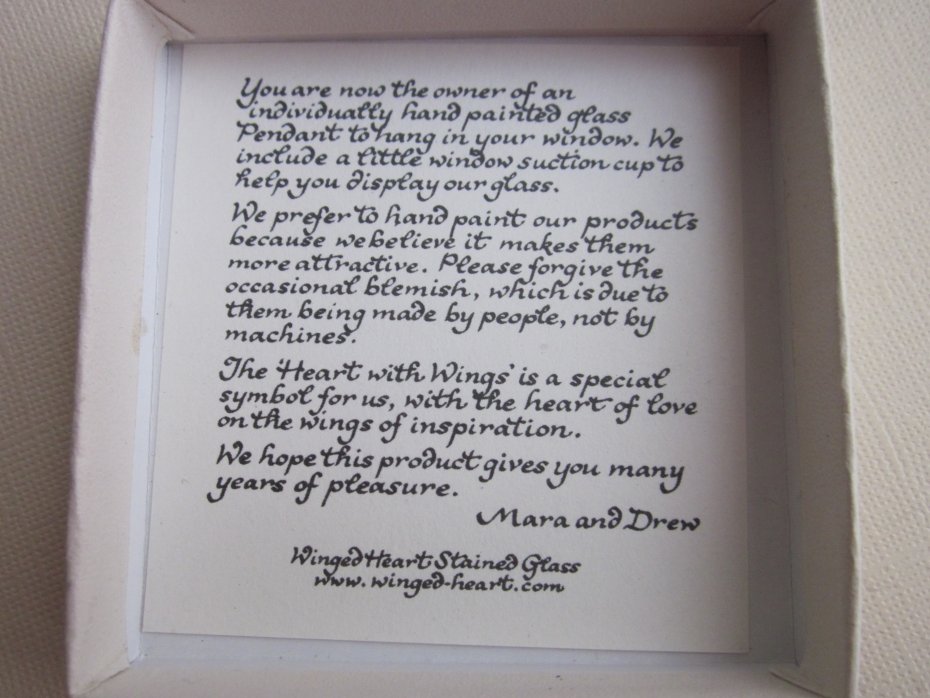 You are now the owner of an
individually hand painted glass
Pendant to hang in your window. We
include a little window suction cup to
help you display our glass.
We prefer to hand paint our products
because we believe it makes them
more attractive. Please forgive the
occasional blemish, which is due to
them being made by people, not by
machines.
The 'Heart with Wings' is a special
symbol for us, with the heart of love
on the wings of inspiration.
We hope this product gives you many
years of pleasure.
Mara and Drew
Winged Heart Stained Glass
www.winged-heart.com